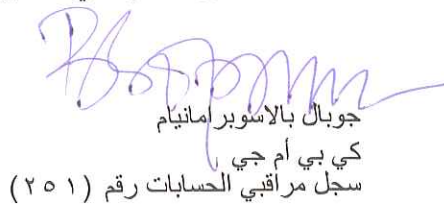 جوبال بالاسوبرامانيام
كي بي أم جي
سجل مراقبي الحسابات رقم (٢٥١)